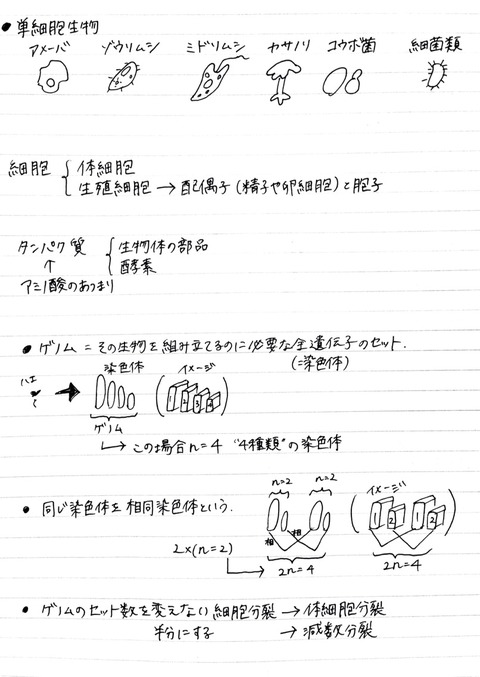 ● 単細胞生物
アメーバ ゾウリムシ ミドリムシ カサノリ コウボ菌 細菌類
細胞 { 体細胞
生殖細胞 → 配偶子 (精子や卵細胞) と胞子
タンパク質 { 生物体の部品
↑ 酵素
アミノ酸のあつまり
● ゲノム = その生物を組み立てるのに必要な全遺伝子のセット.
(=染色体)
ハエ → 染色体 (イメージ 1 2 3 4)
ゲノム
↳ この場合n=4 "4種類"の染色体
n=2 n=2 イメージ
● 同じ染色体を相同染色体という.
相 相 1 2 1 2
2×(n=2) → 2n=4 2n=4
● ゲノムのセット数を変えない細胞分裂 → 体細胞分裂
半分にする → 減数分裂